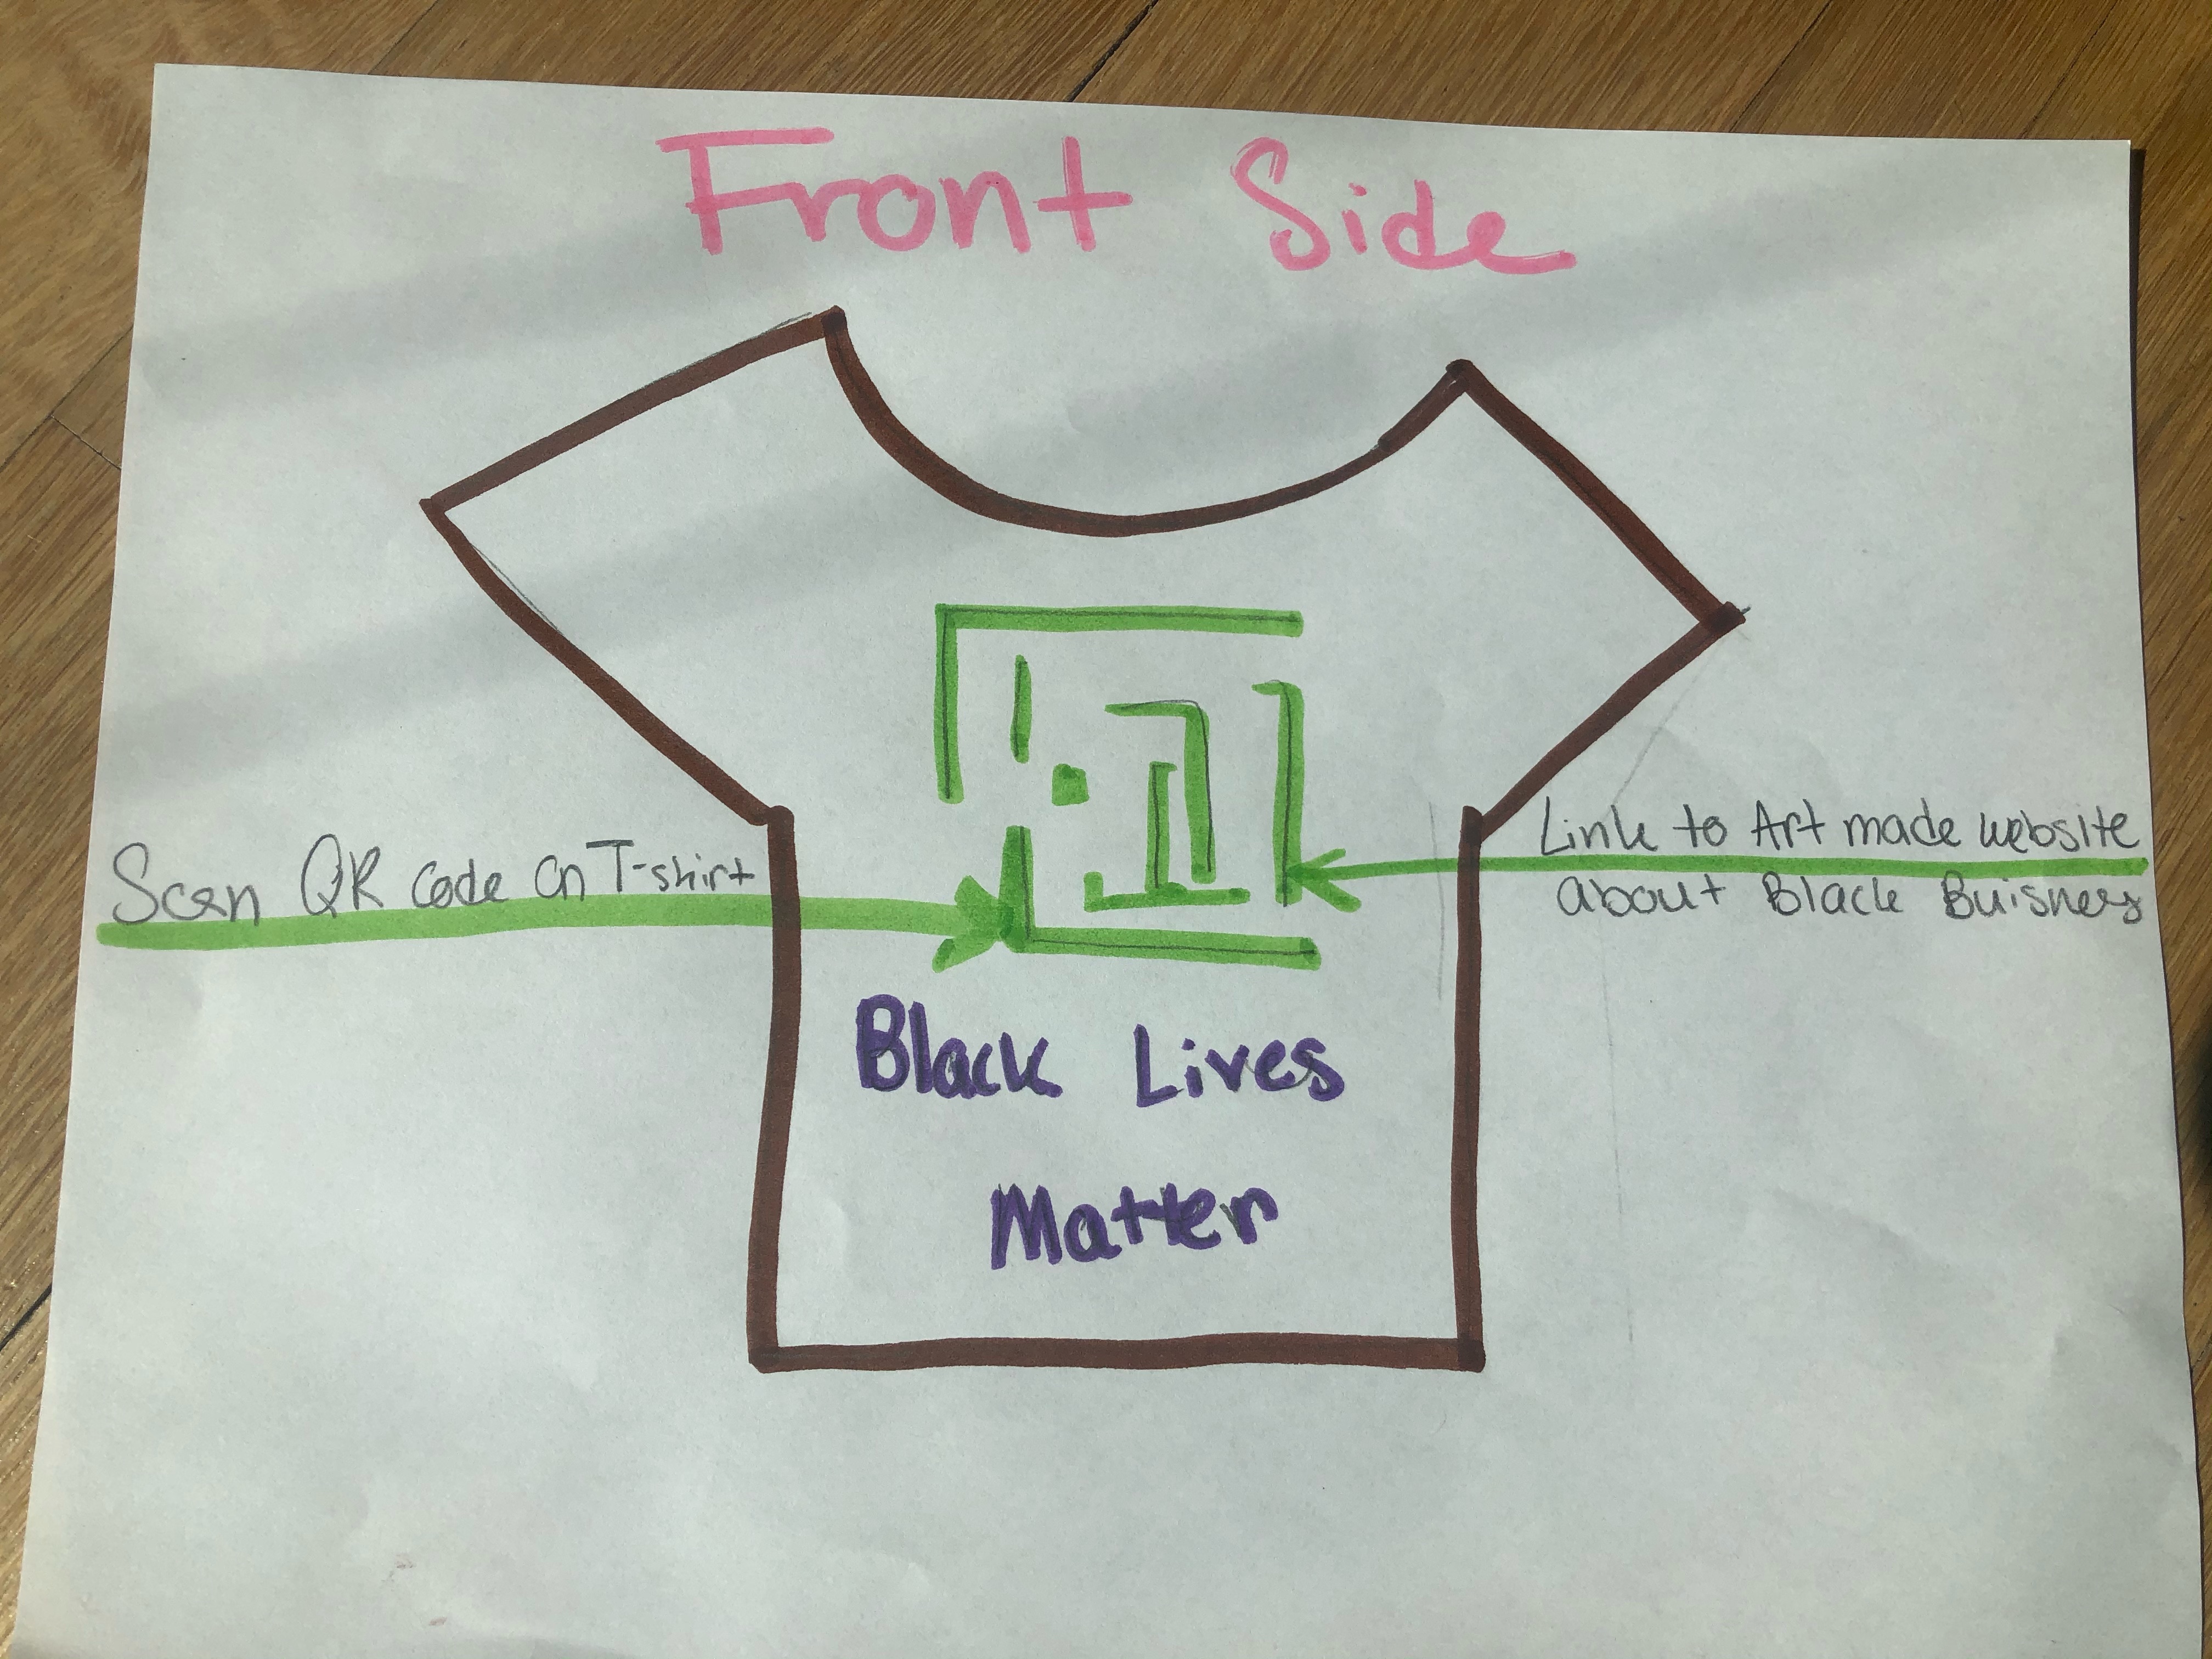 Front Side
Scan QR code on T-shirt
Link to Art made website
about Black Buisness
Black Lives
Matter